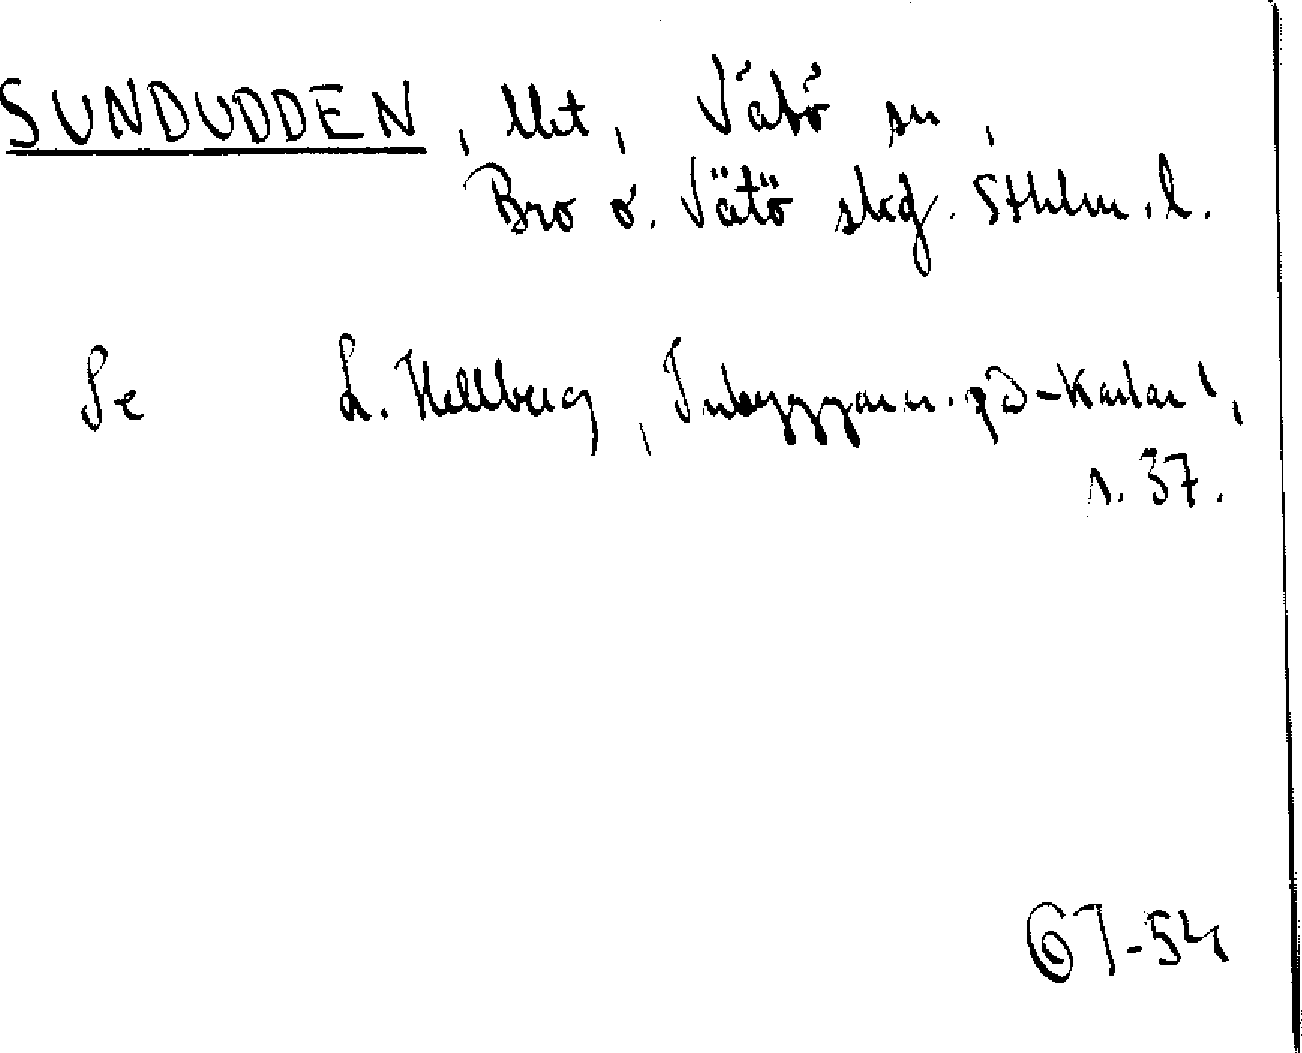 SUNDUDDEN, Ukt, Vätö sn,
Bro o. Vätö skg. Sthlm. l.
Se L. Hellberg, Inbyggarn. på -karlar,
s. 37.
GT-54